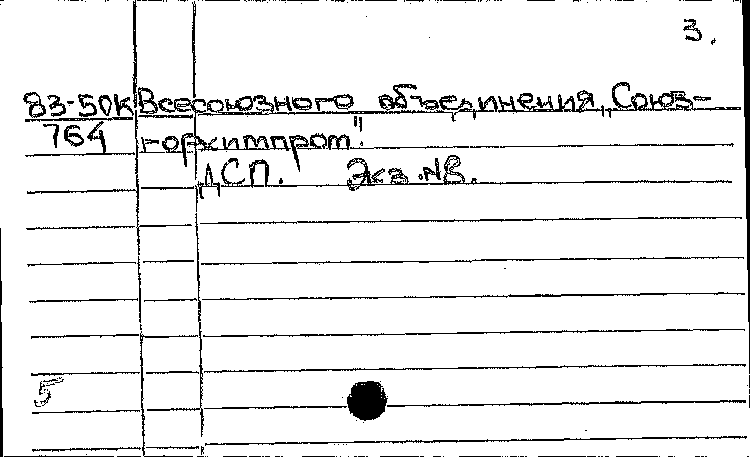 3.
83-50К Всесоюзного объединения „Союз-
764 горхимпром".
ДСП. Экз. №8.
5